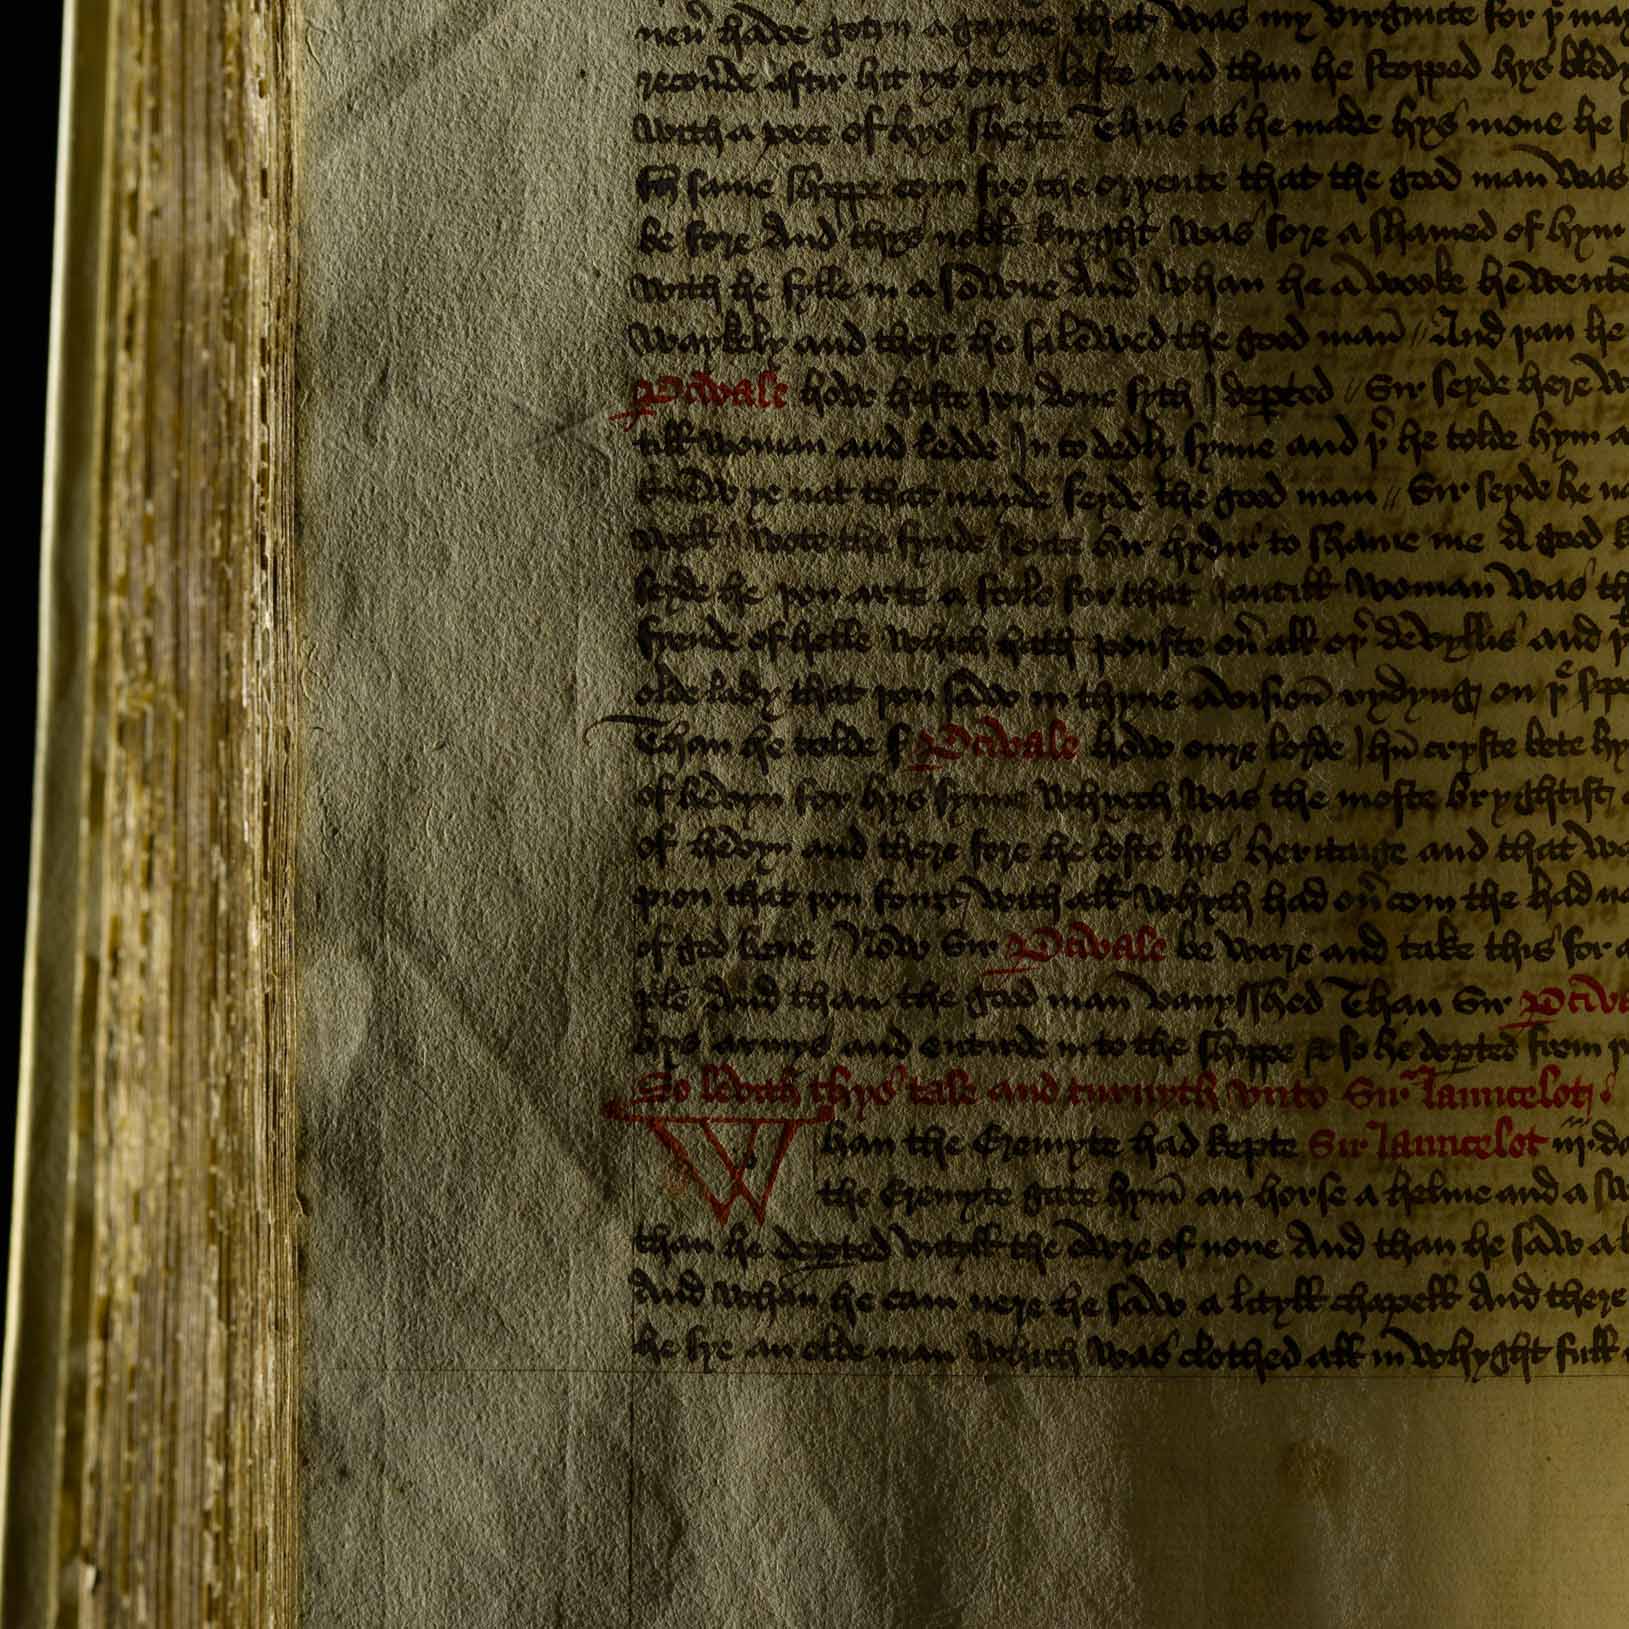 neu̅ hade gotyn a gayne that was my virginite for þͭ may
recoūde aftir hit ys onys loste and than he stopped hys bledy
with a pece of hys sherte Thus as he made hys mone he s
same shippe com fro the oryente that the good man was
be fore And thys noble knyght was sore a shamed of hym
with he fylle in a sowne And whan he awooke he wente
waykely and there he salewed the good man̄ // And þan he
Pcivale how haste þou done syth I depted // Sir seyde here w
till woman and ledde In to dedly synne and þͬ he tolde hym a
knew ye nat that mayde seyde the good man // Sir seyde he na
well I wote the fynde sente hir hydir to shame me A good k
seyde he þou arte a fole for that Jantill woman was th
fyende of helle which hath pouste ou̅ all oþͬ devyllis and þͭ
olde lady that þou saw in thyne avision̄ rydyng on þͤ serpe
Than he tolde sͬ Pcivale how oure lorde Jhū cryste bete hy
of hevyn for hys synne whych was the moste bryghtist
of hevyn and there fore he loste hys heritaige and that wa
pion that þou fought with all whych had ou̅com the had na
of god bene // Now Sir Pcivale be ware and take this for a
ple And than the good man vanysshed Than Sir Pciva
hys armys and entirde in to the shippe & so he depted from þ
So levith thys tale and turnyth vnto Sir Launcelot
Whan the Eremyte had kepte Sir Launcelot iij da
the Eremyte gate hym an horse a helme and a sw
than he depted vntyll the owre of none And than he saw a l
And whan he cam nere he saw a lityll chapell And there
he sye an olde man which was clothed all in whyght full